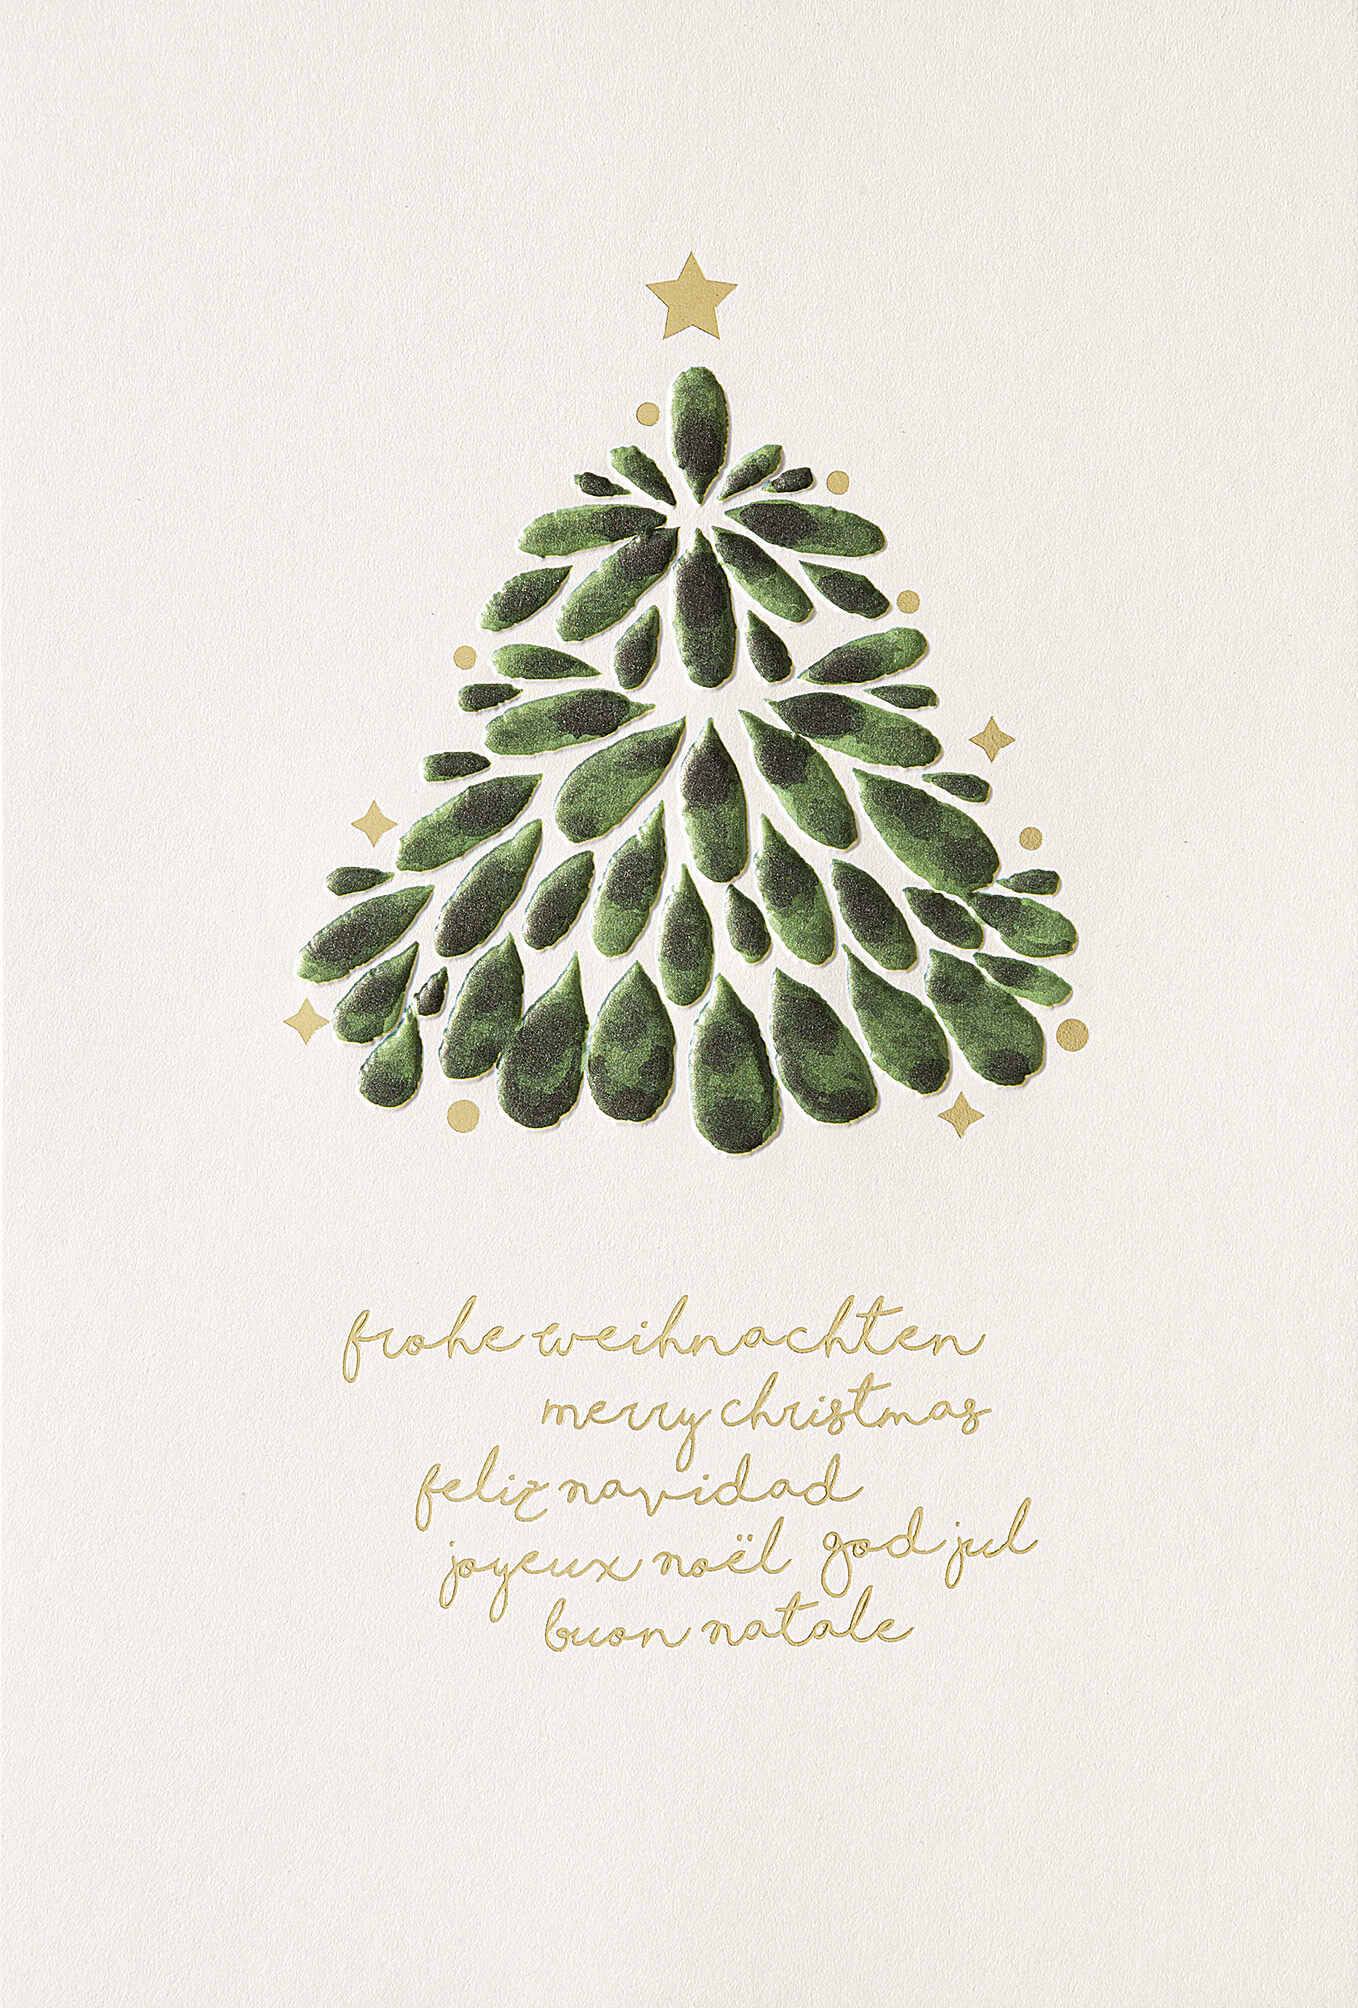 frohe weihnachten
merry christmas
feliz navidad
joyeux noël god jul
buon natale